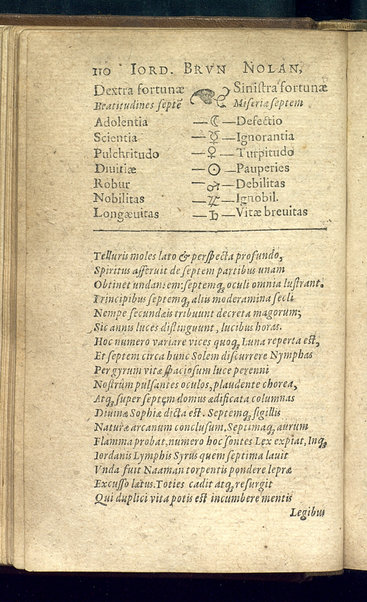 110 IORD. BRVN NOLAN,
Dextra fortunæ Sinistra fortunæ
Beatitudines septē Miseriæ septem
Adolentia —☾— Defectio
Scientia —☿— Ignorantia
Pulchritudo —♀— Turpitudo
Diuitiæ —☉— Pauperies
Robur —♂— Debilitas
Nobilitas —♃— Ignobil.
Longæuitas —♄— Vitæ breuitas
Telluris moles lato & perspecta profundo,
Spiritus asseruit de septem partibus unam
Obtinet undantem: septemq, oculi omnia lustrant.
Principibus septemq, aliis moderamina secli
Nempe secundeis tribuunt decreta magorum;
Sic annis luces distinguunt, lucibus horas.
Hoc numero variare vices quoq, Luna reperta est,
Et septem circa hunc Solem discurrere Nymphas
Per gyrum vitæ spaciosum luce perenni
Nostrûm pulsantes oculos, plaudente chorea,
Atq, super septem domus ædificata columnas
Diuinæ Sophiæ dicta est. Septemq, sigillis
Naturæ arcanum conclusum. Septimaq, aurum
Flamma probat, numero hoc sontes Lex expiat, Inq,
Iordanis Lymphis Syrus quem septima lauit
Vnda fuit Naaman torpentis pondere lepræ
Excusso latus. Toties cadit atq, resurgit
Qui duplici vita potis est incumbere mentis
Legibus